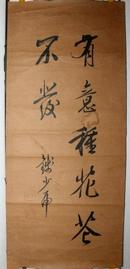 有意種花花
不發
錢少䘵